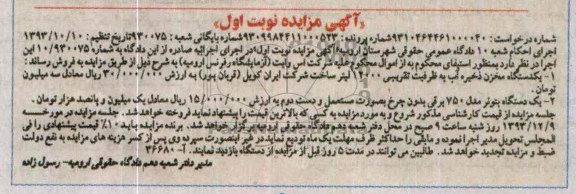 «آگهی مزایده نوبت اول»
شماره درخواست: ۹۳۱۰۴۶۴۴۶۱۰۰۰۰۴۰ شماره پرونده: ۹۳۰۹۹۸۴۴۱۱۰۰۰۵۲۳ شماره بایگانی شعبه: ۹۳۰۰۷۵ تاریخ تنظیم: ۱۳۹۳/۱۰/۱۰
اجرای احکام شعبه ۱۰ دادگاه عمومی حقوقی شهرستان ارومیه «آگهی مزایده نوبت اول» در اجرای اجرائیه صادره از این دادگاه به شماره ۱۰/۹۳۰۰۷۵ این
اجرا در نظر دارد بمنظور استفای محکوم به از اموال محکوم علیه شرکت آس رایت (آزمایشگاه رفرنس ارومیه) به شرح ذیل از طریق مزایده به فروش رساند:
۱- یکدستگاه مخزن ذخیره آب به ظرفیت تقریبی ۱۲۰۰۰ لیتر ساخت شرکت ایران کویل (قربان پور) به ارزش ۳۰/۰۰۰/۰۰۰ ریال معادل سه میلیون
تومان.
۲- یک دستگاه بتونر مدل ۷۵۰ برقی بدون چرخ بصورت مستعمل و دست دوم به ارزش ۱۵/۰۰۰/۰۰۰ ریال معادل یک میلیون و پانصد هزار تومان.
جلسه مزایده از قیمت کارشناسی مذکور شروع و به مورد مزایده به کسی که بالاترین قیمت را پیشنهاد نماید فروخته خواهد شد. جلسه مزایده در مورخه
۱۳۹۳/۱۲/۹ روز شنبه ساعت ۹ صبح در محل دفتر شعبه دهم دادگاه حقوقی ارومیه برگزار خواهد شد. برنده مزایده باید ۱۰٪ قیمت پیشنهادی را فی
المجلس تحویل مدیر اجرا نموده و مابقی را حداکثر ظرف مهلت یک ماه تودیع نماید در غیر اینصورت سپرده وی پس از کسر هزینه های مزایده به نفع دولت
ضبط و مزایده تجدید خواهد شد. طالبین می توانند در مدت ۵ روز قبل از مزایده از دستگاه بازدید نمایند. آ-۳۶۶۸۰
مدیر دفتر شعبه دهم دادگاه حقوقی ارومیه- رسول زاده